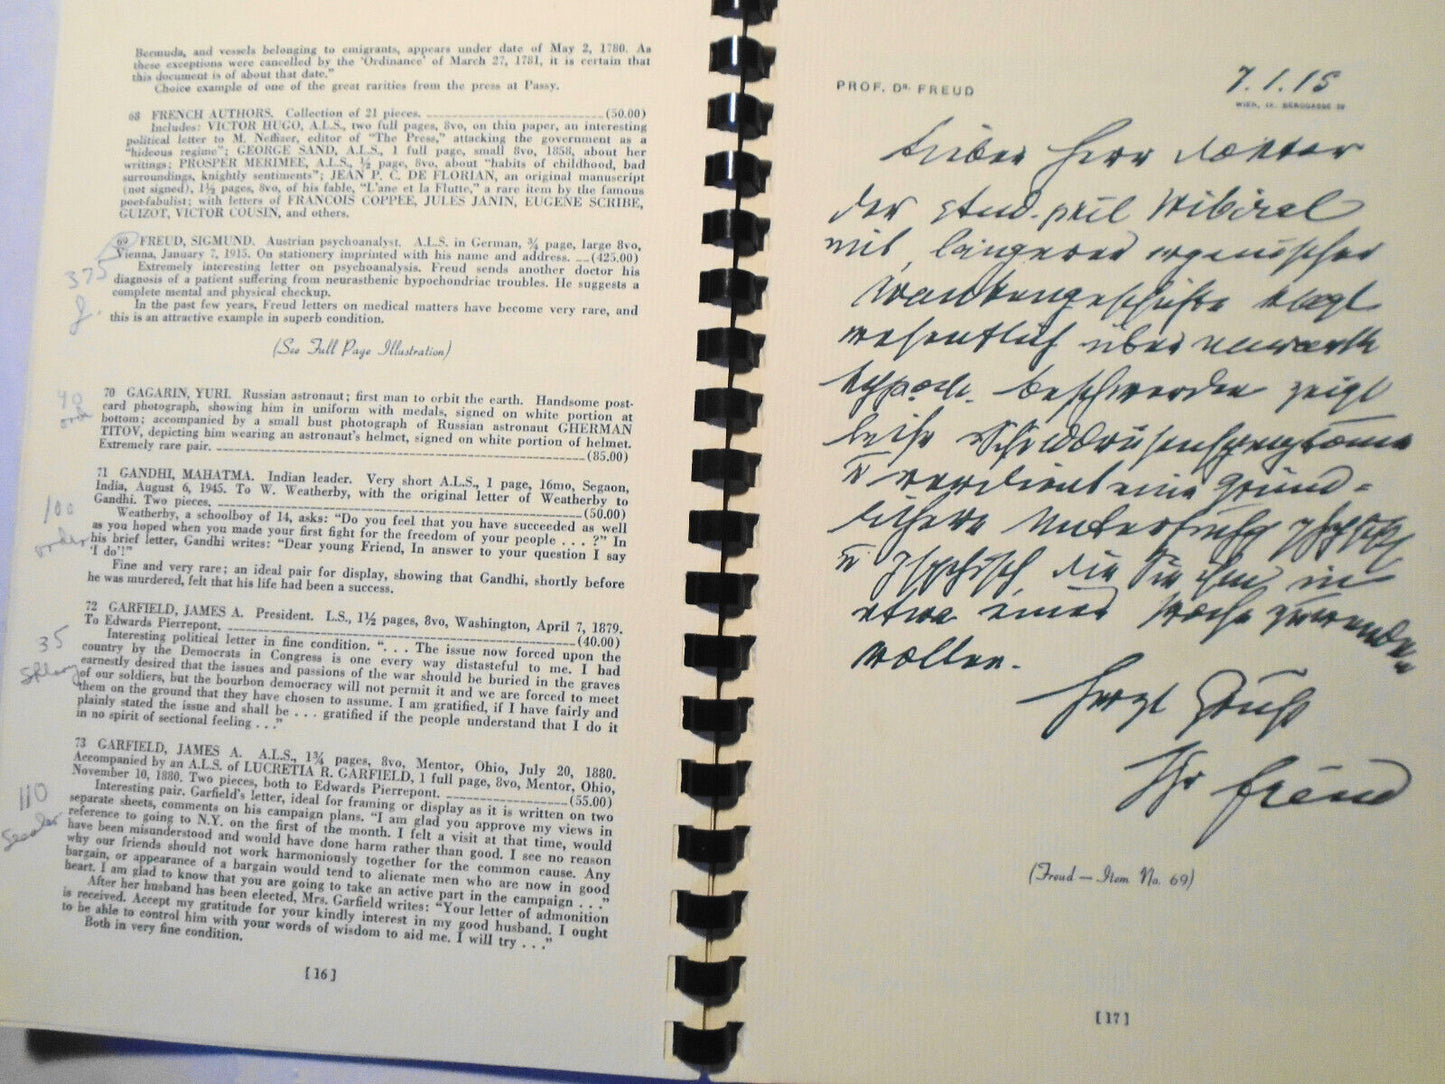 Bermuda, and vessels belonging to emigrants, appears under date of May 2, 1780. As
these exceptions were cancelled by the 'Ordinance' of March 27, 1781, it is certain that
this document is of about that date."
Choice example of one of the great rarities from the press at Passy.
68 FRENCH AUTHORS. Collection of 21 pieces. (50.00)
Includes: VICTOR HUGO, A.L.S., two full pages, 8vo, on thin paper, an interesting
political letter to M. Neffizer, editor of "The Press," attacking the government as a
"hideous regime"; GEORGE SAND, A.L.S., 1 full page, small 8vo, 1858, about her
writings; PROSPER MERIMEE, A.L.S., ½ page, 8vo, about "habits of childhood, bad
surroundings, knightly sentiments"; JEAN P. C. DE FLORIAN, an original manuscript
(not signed), 1½ pages, 8vo, of his fable, "L'ane et la Flutte," a rare item by the famous
poet-fabulist; with letters of FRANCOIS COPPEE, JULES JANIN, EUGENE SCRIBE,
GUIZOT, VICTOR COUSIN, and others.
69 FREUD, SIGMUND. Austrian psychoanalyst. A.L.S. in German, ¾ page, large 8vo,
Vienna, January 7, 1915. On stationery imprinted with his name and address. (425.00)
Extremely interesting letter on psychoanalysis. Freud sends another doctor his
diagnosis of a patient suffering from neurasthenic hypochondriac troubles. He suggests a
complete mental and physical checkup.
In the past few years, Freud letters on medical matters have become very rare, and
this is an attractive example in superb condition.
375
(See Full Page Illustration)
70 GAGARIN, YURI. Russian astronaut; first man to orbit the earth. Handsome post-
card photograph, showing him in uniform with medals, signed on white portion at
bottom; accompanied by a small bust photograph of Russian astronaut GHERMAN
TITOV, depicting him wearing an astronaut's helmet, signed on white portion of helmet.
Extremely rare pair. (85.00)
40
order
71 GANDHI, MAHATMA. Indian leader. Very short A.L.S., 1 page, 16mo, Segaon,
India, August 6, 1945. To W. Weatherby, with the original letter of Weatherby to
Gandhi. Two pieces. (50.00)
Weatherby, a schoolboy of 14, asks: "Do you feel that you have succeeded as well
as you hoped when you made your first fight for the freedom of your people . . . ?" In
his brief letter, Gandhi writes: "Dear young Friend, In answer to your question I say
'I do'!"
Fine and very rare; an ideal pair for display, showing that Gandhi, shortly before
he was murdered, felt that his life had been a success.
100
order
72 GARFIELD, JAMES A. President. L.S., 1½ pages, 8vo, Washington, April 7, 1879.
To Edwards Pierrepont. (40.00)
Interesting political letter in fine condition. ". . . The issue now forced upon the
country by the Democrats in Congress is one every way distasteful to me. I had
earnestly desired that the issues and passions of the war should be buried in the graves
of our soldiers, but the bourbon democracy will not permit it and we are forced to meet
them on the ground that they have chosen to assume. I am gratified, if I have fairly and
plainly stated the issue and shall be . . . gratified if the people understand that I do it
in no spirit of sectional feeling . . ."
35
73 GARFIELD, JAMES A. A.L.S., 1¾ pages, 8vo, Mentor, Ohio, July 20, 1880.
Accompanied by an A.L.S. of LUCRETIA R. GARFIELD, 1 full page, 8vo, Mentor, Ohio,
November 10, 1880. Two pieces, both to Edwards Pierrepont. (55.00)
Interesting pair. Garfield's letter, ideal for framing or display as it is written on two
separate sheets, comments on his campaign plans. "I am glad you approve my views in
reference to going to N.Y. on the first of the month. I felt a visit at that time, would
have been misunderstood and would have done harm rather than good. I see no reason
why our friends should not work harmoniously together for the common cause. Any
bargain, or appearance of a bargain would tend to alienate men who are now in good
heart. I am glad to know that you are going to take an active part in the campaign . . ."
After her husband has been elected, Mrs. Garfield writes: "Your letter of admonition
is received. Accept my gratitude for your kindly interest in my good husband. I ought
to be able to control him with your words of wisdom to aid me. I will try . . ."
Both in very fine condition.
110
[16]
PROF. DR. FREUD
7.1.15
WIEN, IX. BERGGASSE 19
Lieber Herr Doktor
Der stud. phil
mit längerer organischer
Krankengeschichte klagt
wesentlich über neurasth
hypoch. Beschwerden zeigt
leichte Schilddrüsensymptome
u verdient eine gründ-
lichere Untersuchg physik
u psychisch die Sie ihm in
etwa einer Woche zuwenden
wollen.
Herzl Gruß
Ihr Freud
(Freud—Item No. 69)
[17]